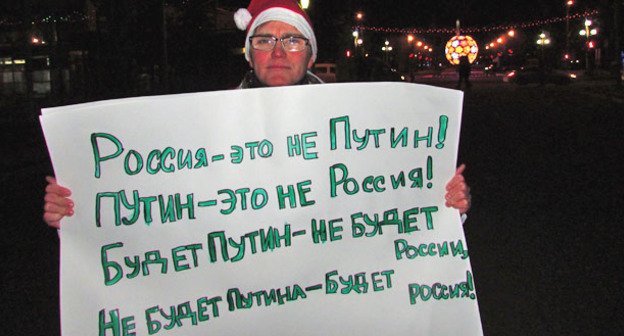 Россия-это не Путин!
Путин-это не Россия!
Будет Путин-не будет
России,
Не будет Путина-будет
россия!